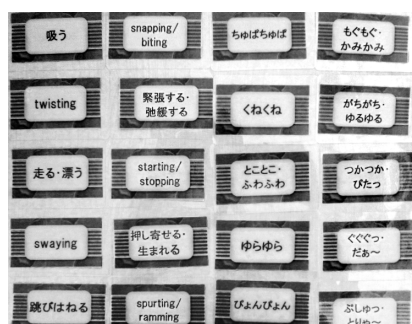 吸う
snapping/
biting
ちゅぱちゅぱ
もぐもぐ・
かみかみ
twisting
緊張する・
弛緩する
くねくね
がちがち・
ゆるゆる
走る・漂う
starting/
stopping
とことこ・
ふわふわ
つかつか・
ぴたっ
swaying
押し寄せる・
生まれる
ゆらゆら
ぐぐぐっ・
だぁ～
跳びはねる
spurting/
ramming
ぴょんぴょん
ぷしゅっ・
とりゃ～